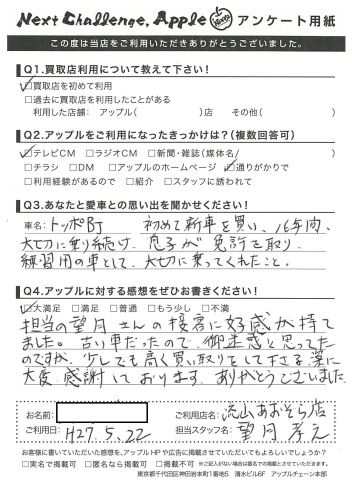 Next Challenge, Apple アンケート用紙
この度は当店をご利用いただきありがとうございました。
Q1.買取店利用について教えて下さい！
☑買取店を初めて利用
□過去に買取店を利用したことがある
利用した店舗： アップル（　　　　　）店　その他（　　　　　）
Q2.アップルをご利用になったきっかけは？（複数回答可）
☑テレビCM □ラジオCM □新聞・雑誌（媒体名/　　　　　）
□チラシ □DM □アップルのホームページ ☑通りがかりで
□利用経験があるので □紹介 □スタッフに誘われて
Q3.あなたと愛車との思い出を聞かせください！
車名：トッポBJ 初めて新車を買い、16年間、
大切に乗り続け、息子が免許を取り、
練習用の車として、大切に乗ってくれたこと。
Q4.アップルに対する感想をぜひお書きください！
☑大満足 □満足 □普通 □もう少し □不満
担当の望月さんの接客に好感が持て
ました。古い車だったので、御迷惑と思ってた
のですが、少しでも高く買い取りをして下さる姿に
大変感謝しております。ありがとうございました
お名前： ご利用店名：流山おおぞら店
ご利用日：H27.5.22 担当スタッフ名：望月孝之
お客様に書いていただいた感想を、アップルHPや広告に掲載させていただいてもよろしいでしょうか？
□実名で掲載可 □匿名なら掲載可 □掲載不可 ※ご記入がない場合は匿名での掲載とさせていただきます。
東京都千代田区神田岩本町1番地5 清水ビル6F アップルチェーン本部